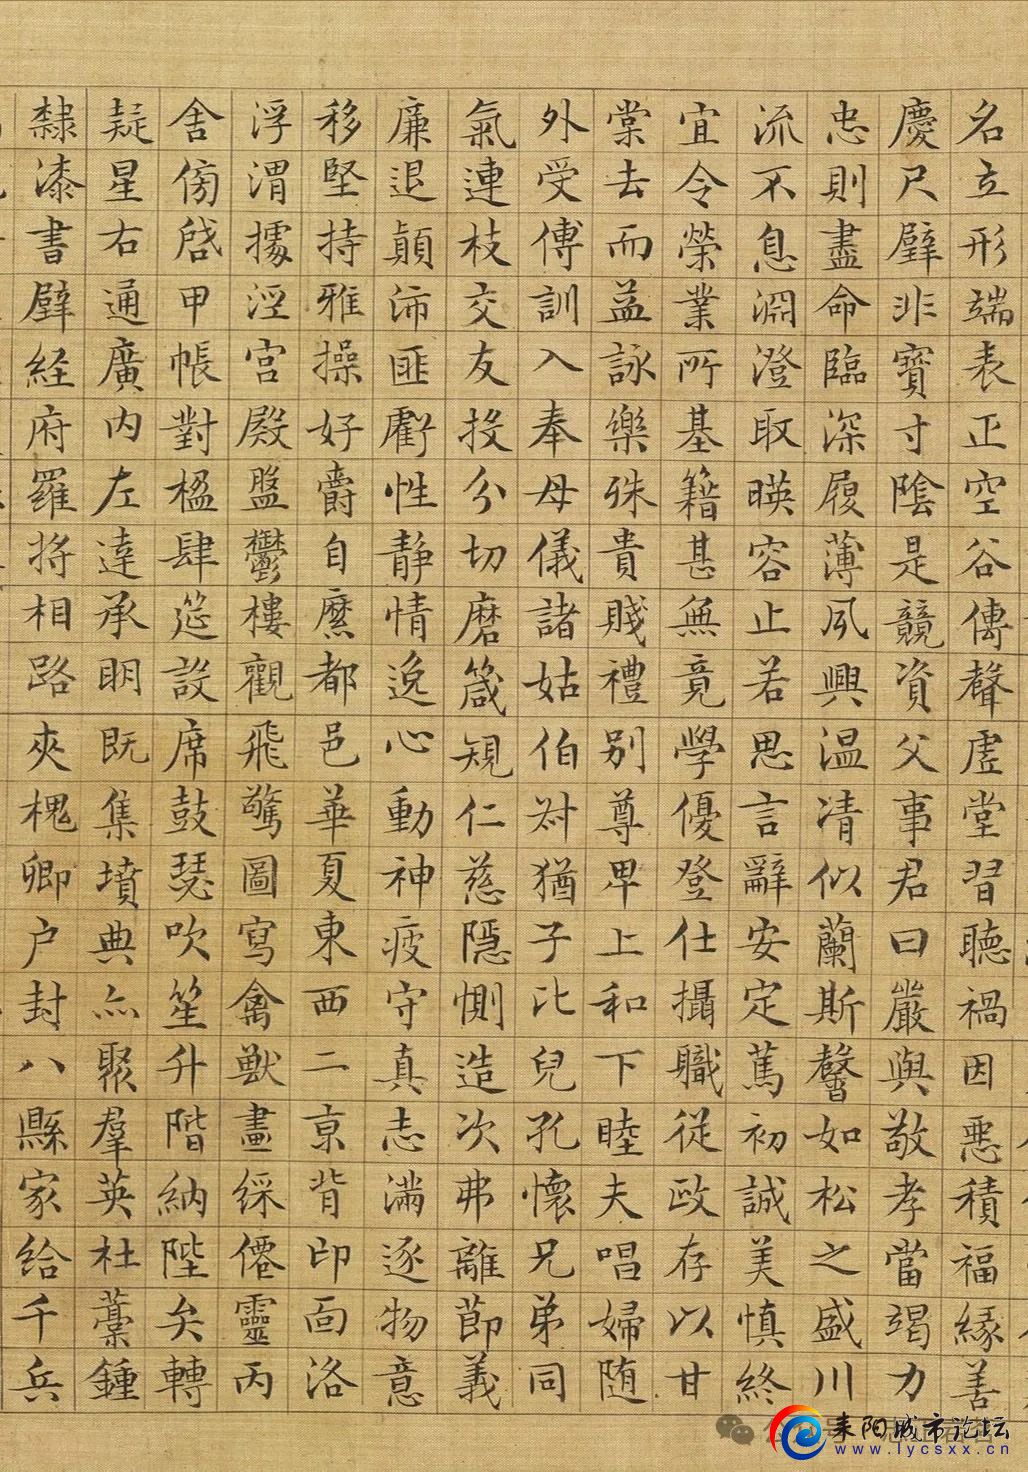 名立形端表正空谷傳聲虛堂習聽禍因惡積福緣善
慶尺璧非寶寸陰是競資父事君曰嚴與敬孝當竭力
忠則盡命臨深履薄夙興温凊似蘭斯馨如松之盛川
流不息淵澄取暎容止若思言辭安定篤初誠美慎終
宜令榮業所基籍甚無竟學優登仕攝職從政存以甘
棠去而益詠樂殊貴賤禮別尊卑上和下睦夫唱婦随
外受傅訓入奉母儀諸姑伯叔猶子比兒孔懷兄弟同
氣連枝交友投分切磨箴規仁慈隱惻造次弗離節義
廉退顛沛匪虧性静情逸心動神疲守真志滿逐物意
移堅持雅操好爵自縻都邑華夏東西二京背邙面洛
浮渭據涇宮殿盤鬱樓觀飛驚圖寫禽獸畫綵僊靈丙
舍傍啓甲帳對楹肆筵設席鼓瑟吹笙升階納陛矣轉
疑星右通廣内左達承明既集墳典亦聚羣英杜藁鍾
隸漆書壁経府羅將相路夾槐卿户封八縣家給千兵
耒阳城市论坛
www.lycsxx.cn